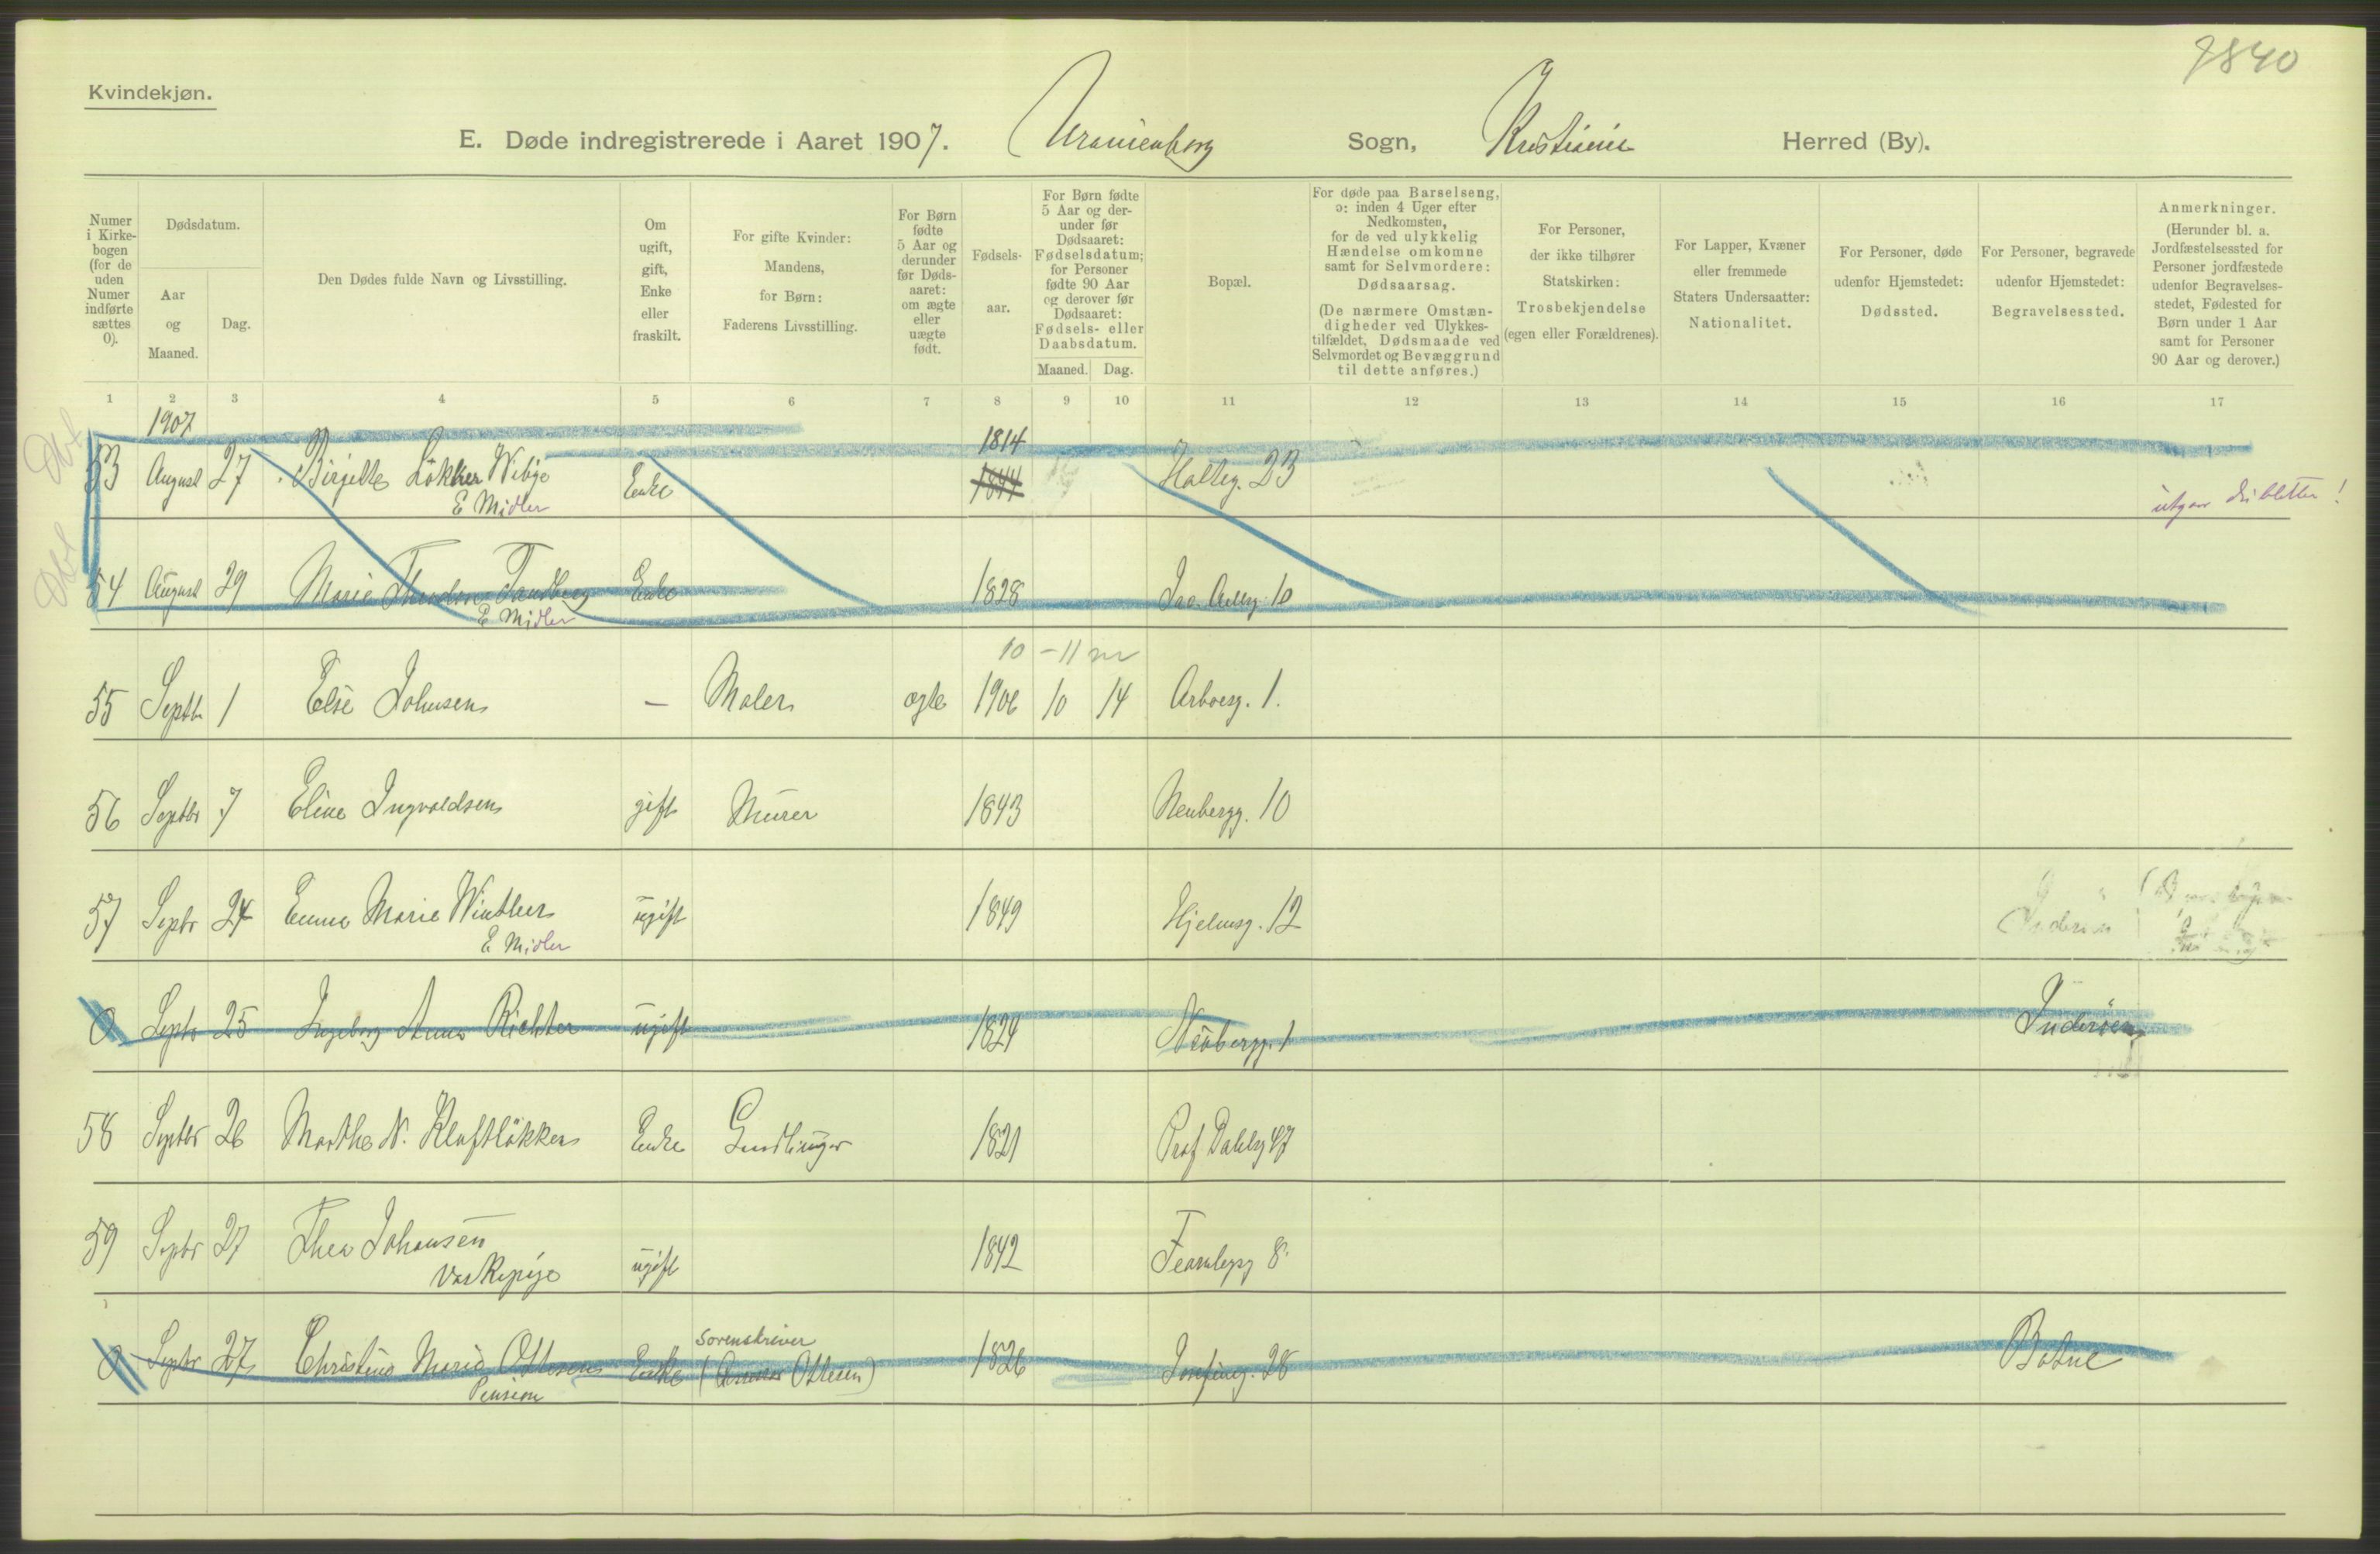 9840
Kvindekjøn.
E. Døde indregistrerede i Aaret 1907. Uranienborg Sogn, Kristiania Herred (By).
Numer i Kirkebogen (for de uden Numer indførte sættes 0).
Dødsdatum.
Aar og Maaned.
Dag.
Den Dødes fulde Navn og Livsstilling.
Om ugift, gift, Enke eller fraskilt.
For gifte Kvinder: Mandens, for Børn: Faderens Livsstilling.
For Børn fødte 5 Aar og derunder før Dødsaaret: om ægte eller uægte født.
Fødselsaar.
For Børn fødte 5 Aar og derunder før Dødsaaret: Fødselsdatum; for Personer fødte 90 Aar og derover før Dødsaaret: Fødsels- eller Daabsdatum.
Maaned. Dag.
Bopæl.
For døde paa Barselseng, ɔ: inden 4 Uger efter Nedkomsten, for de ved ulykkelig Hændelse omkomne samt for Selvmordere: Dødsaarsag.
(De nærmere Omstændigheder ved Ulykkestilfældet, Dødsmaade ved Selvmordet og Bevæggrund til dette anføres.)
For Personer, der ikke tilhører Statskirken: Trosbekjendelse (egen eller Forældrenes).
For Lapper, Kvæner eller fremmede Staters Undersaatter: Nationalitet.
For Personer, døde udenfor Hjemstedet: Dødssted.
For Personer, begravede udenfor Hjemstedet: Begravelsessted.
Anmerkninger. (Herunder bl. a. Jordfæstelsessted for Personer jordfæstede udenfor Begravelsesstedet, Fødested for Børn under 1 Aar samt for Personer 90 Aar og derover.)
1 2 3 4 5 6 7 8 9 10 11 12 13 14 15 16 17
1907
1814
Dbl 53 August 27 Birgitte Løkker Wibye Enke 1844 Holteg. 23
E Midler
utgaar dubletter!
Dbl 54 August 29 Marie Theodora Tandberg Enke 1828 Ivar Aaseng 10
E Midler
10 - 11 m
55 Septb 1 Else Johnsen — Maler ægte 1906 10 14 Arboesg. 1.
56 Septbr 7 Eline Ingvaldsen gift Murer 1843 Neubergg. 10
57 Septbr 24 Emma Marie Winther ugift 1849 Hjelmsg. 12
E Midler
0 Septbr 25 Ingeborg Anna Richter ugift 1824 Neubergg. 1 Inderøen
58 Septbr 26 Marthe N. Kloftløkken Enke 1821 Prof Dahlsg 47
59 Septbr 27 Thea Johansen 1842 Fearnleysg 8.
Vaskepige ugift
Sorenskriver
0 Septbr 27 Christine Marie Ottesen Enke ( Ottesen) 1826 Josefineg. 28 Botne
Pension